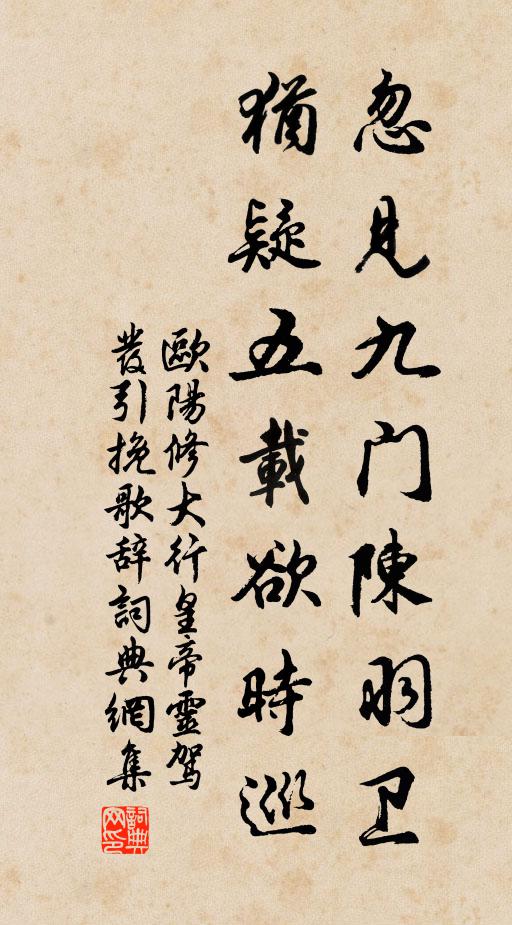 忽見九门陳羽卫
猶疑五載欲時巡
歐陽修大行皇帝靈驾
發引挽歌辞詞典網集
詞典网印